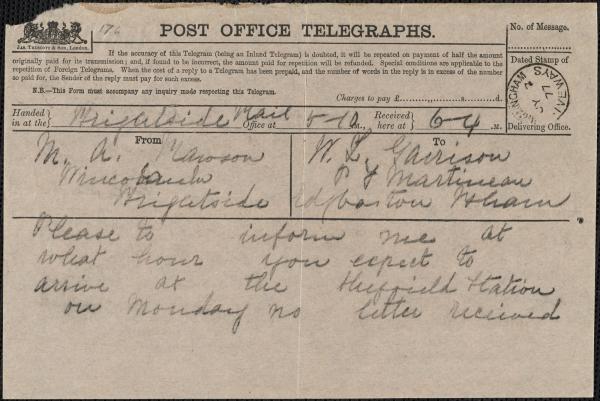 176
POST OFFICE TELEGRAPHS.
No. of Message.
JAS. TRUSCOTT & SON, London.
If the accuracy of this Telegram (being an Inland Telegram) is doubted, it will be repeated on payment of half the amount
originally paid for its transmission; and, if found to be incorrect, the amount paid for repetition will be refunded. Special conditions are applicable to the
repetition of Foreign Telegrams. When the cost of a reply to a Telegram has been prepaid, and the number of words in the reply is in excess of the number
so paid for, the Sender of the reply must pay for such excess.
N.B.—This Form must accompany any inquiry made respecting this Telegram.
Charges to pay £ s. d.
Dated Stamp of
FIVE WAYS
JY
77
Delivering Office.
Handed in at the Brightside Rail Office at 5-10 M. Received here at 6-4 M.
From
M. A. Rawson
Wincobank
Brightside
To
W. L. Garrison
R F Martineau
Edgbaston Bham
Please to inform me at
what hour you expect to
arrive at the Sheffield Station
on Monday no letter received